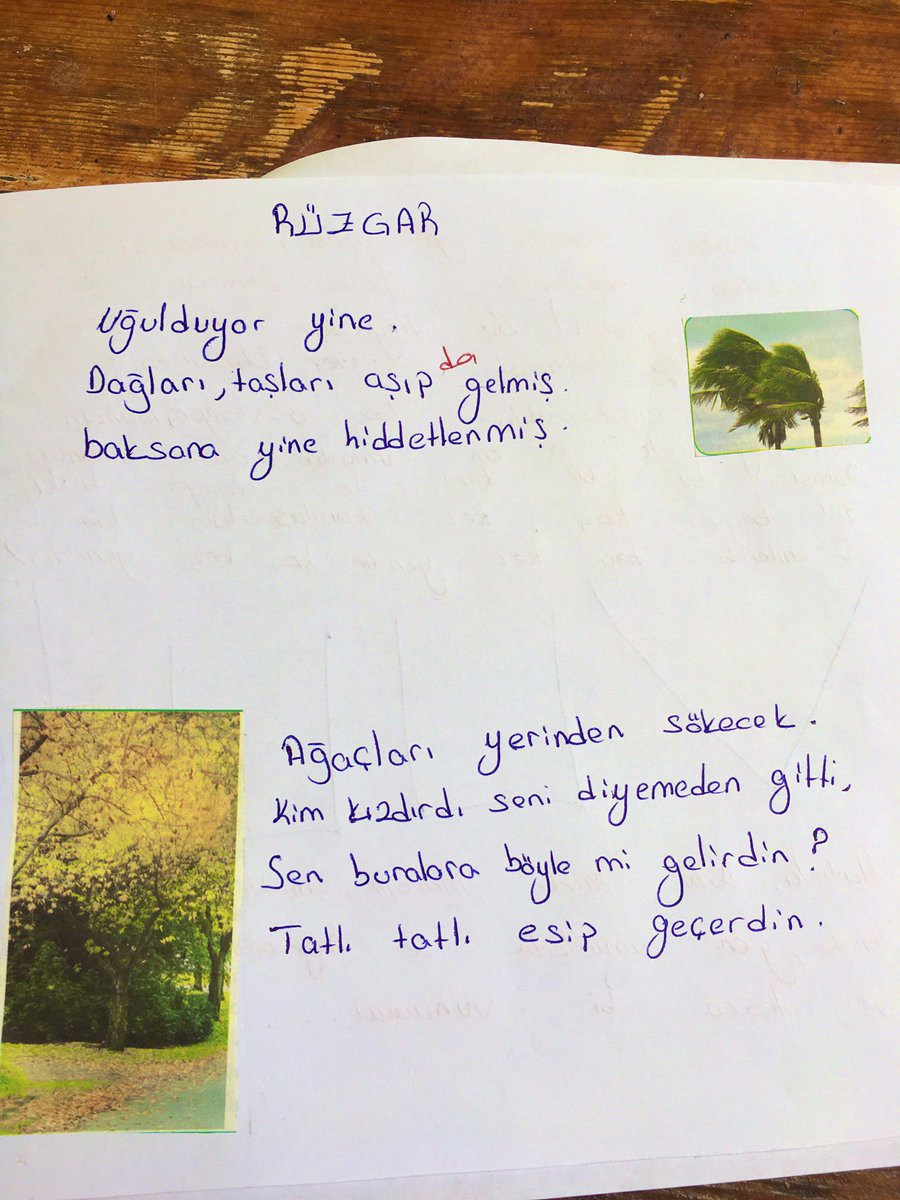 RÜZGAR
Uğulduyor yine.
Dağları, taşları aşıp da gelmiş.
baksana yine hiddetlenmiş.
Ağaçları yerinden sökecek.
Kim kızdırdı seni diyemeden gitti,
Sen buralara böyle mi gelirdin?
Tatlı tatlı esip geçerdin.